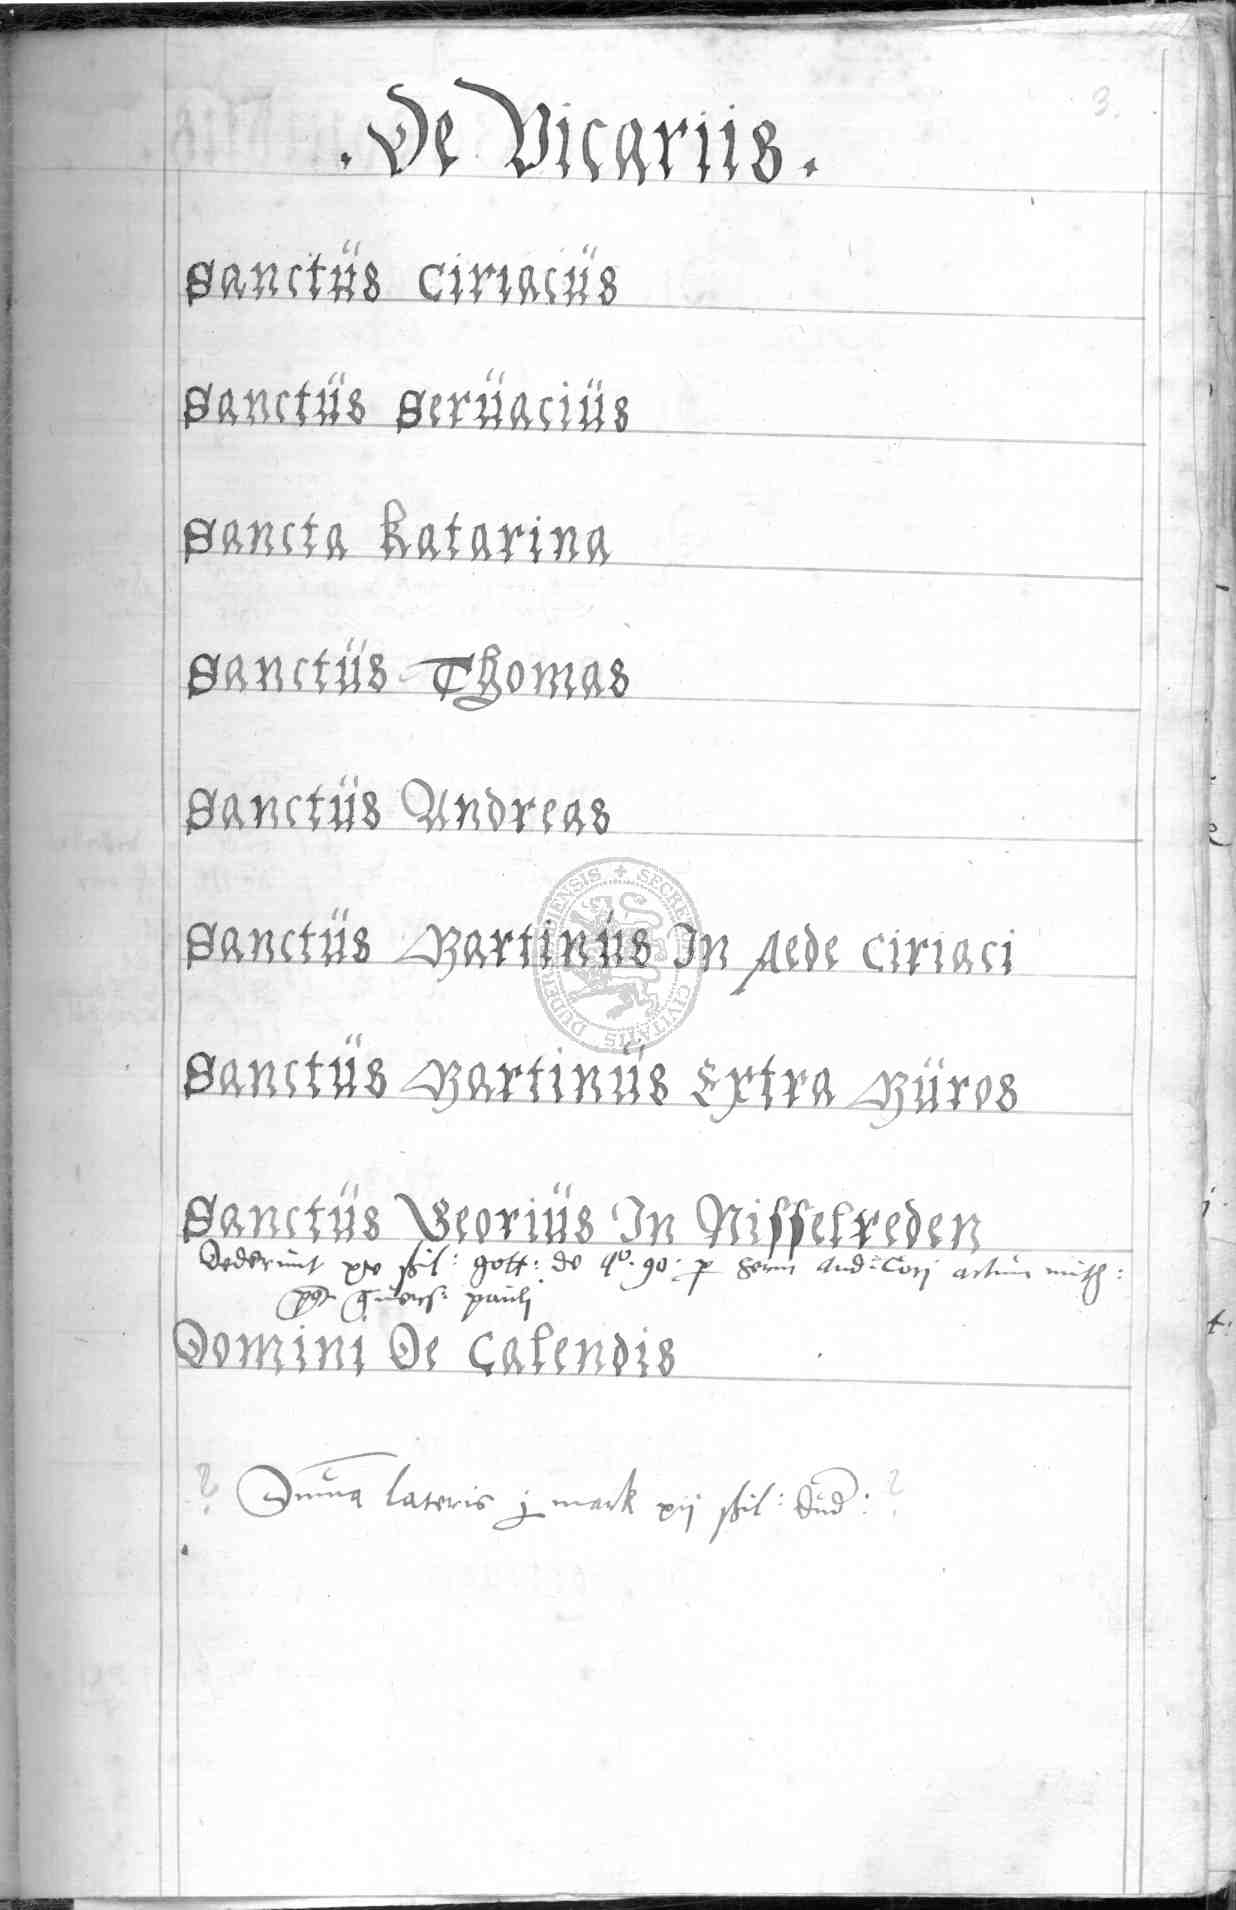 3.
. De Vicariis .
Sanctüs Ciriacüs
Sanctüs Serüaciüs
Sancta Katarina
Sanctüs Thomas
Sanctüs Andreas
Sanctüs Martinüs In Aede Ciriaci
Sanctüs Martinüs Extra Müros
Sanctüs Georiüs In Nisselreden
Dederunt xv ßil: gott: de 4º. 90. p herm and: Cori actum mith:
pauli
Domini De Calendis
Summa lateris j mark xij ßil: dud:
SECRET CIVITATIS DUDER ENSIS